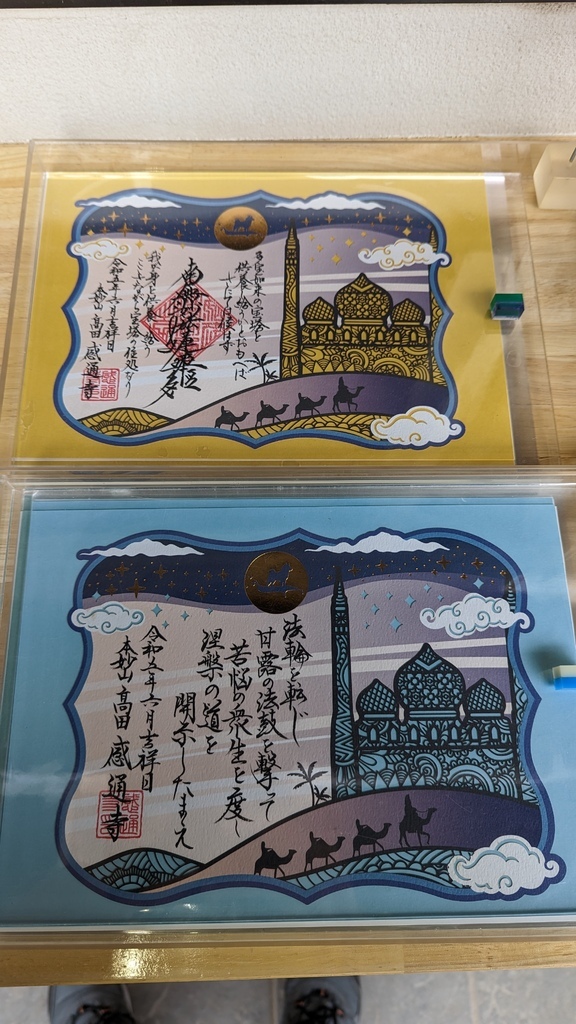 多宝如来の宝塔を
供養し給うかとおもへば
さにては候はず
南無妙法蓮華経
我が身を供養し給う
ここさながら宝塔の住処なり
令和五年六月吉祥日
本妙山 高田 感通寺
法輪を転じ
甘露の法鼓を撃て
苦悩の衆生を度し
涅槃の道を
開示したまえ
令和五年六月吉祥日
本妙山 高田 感通寺